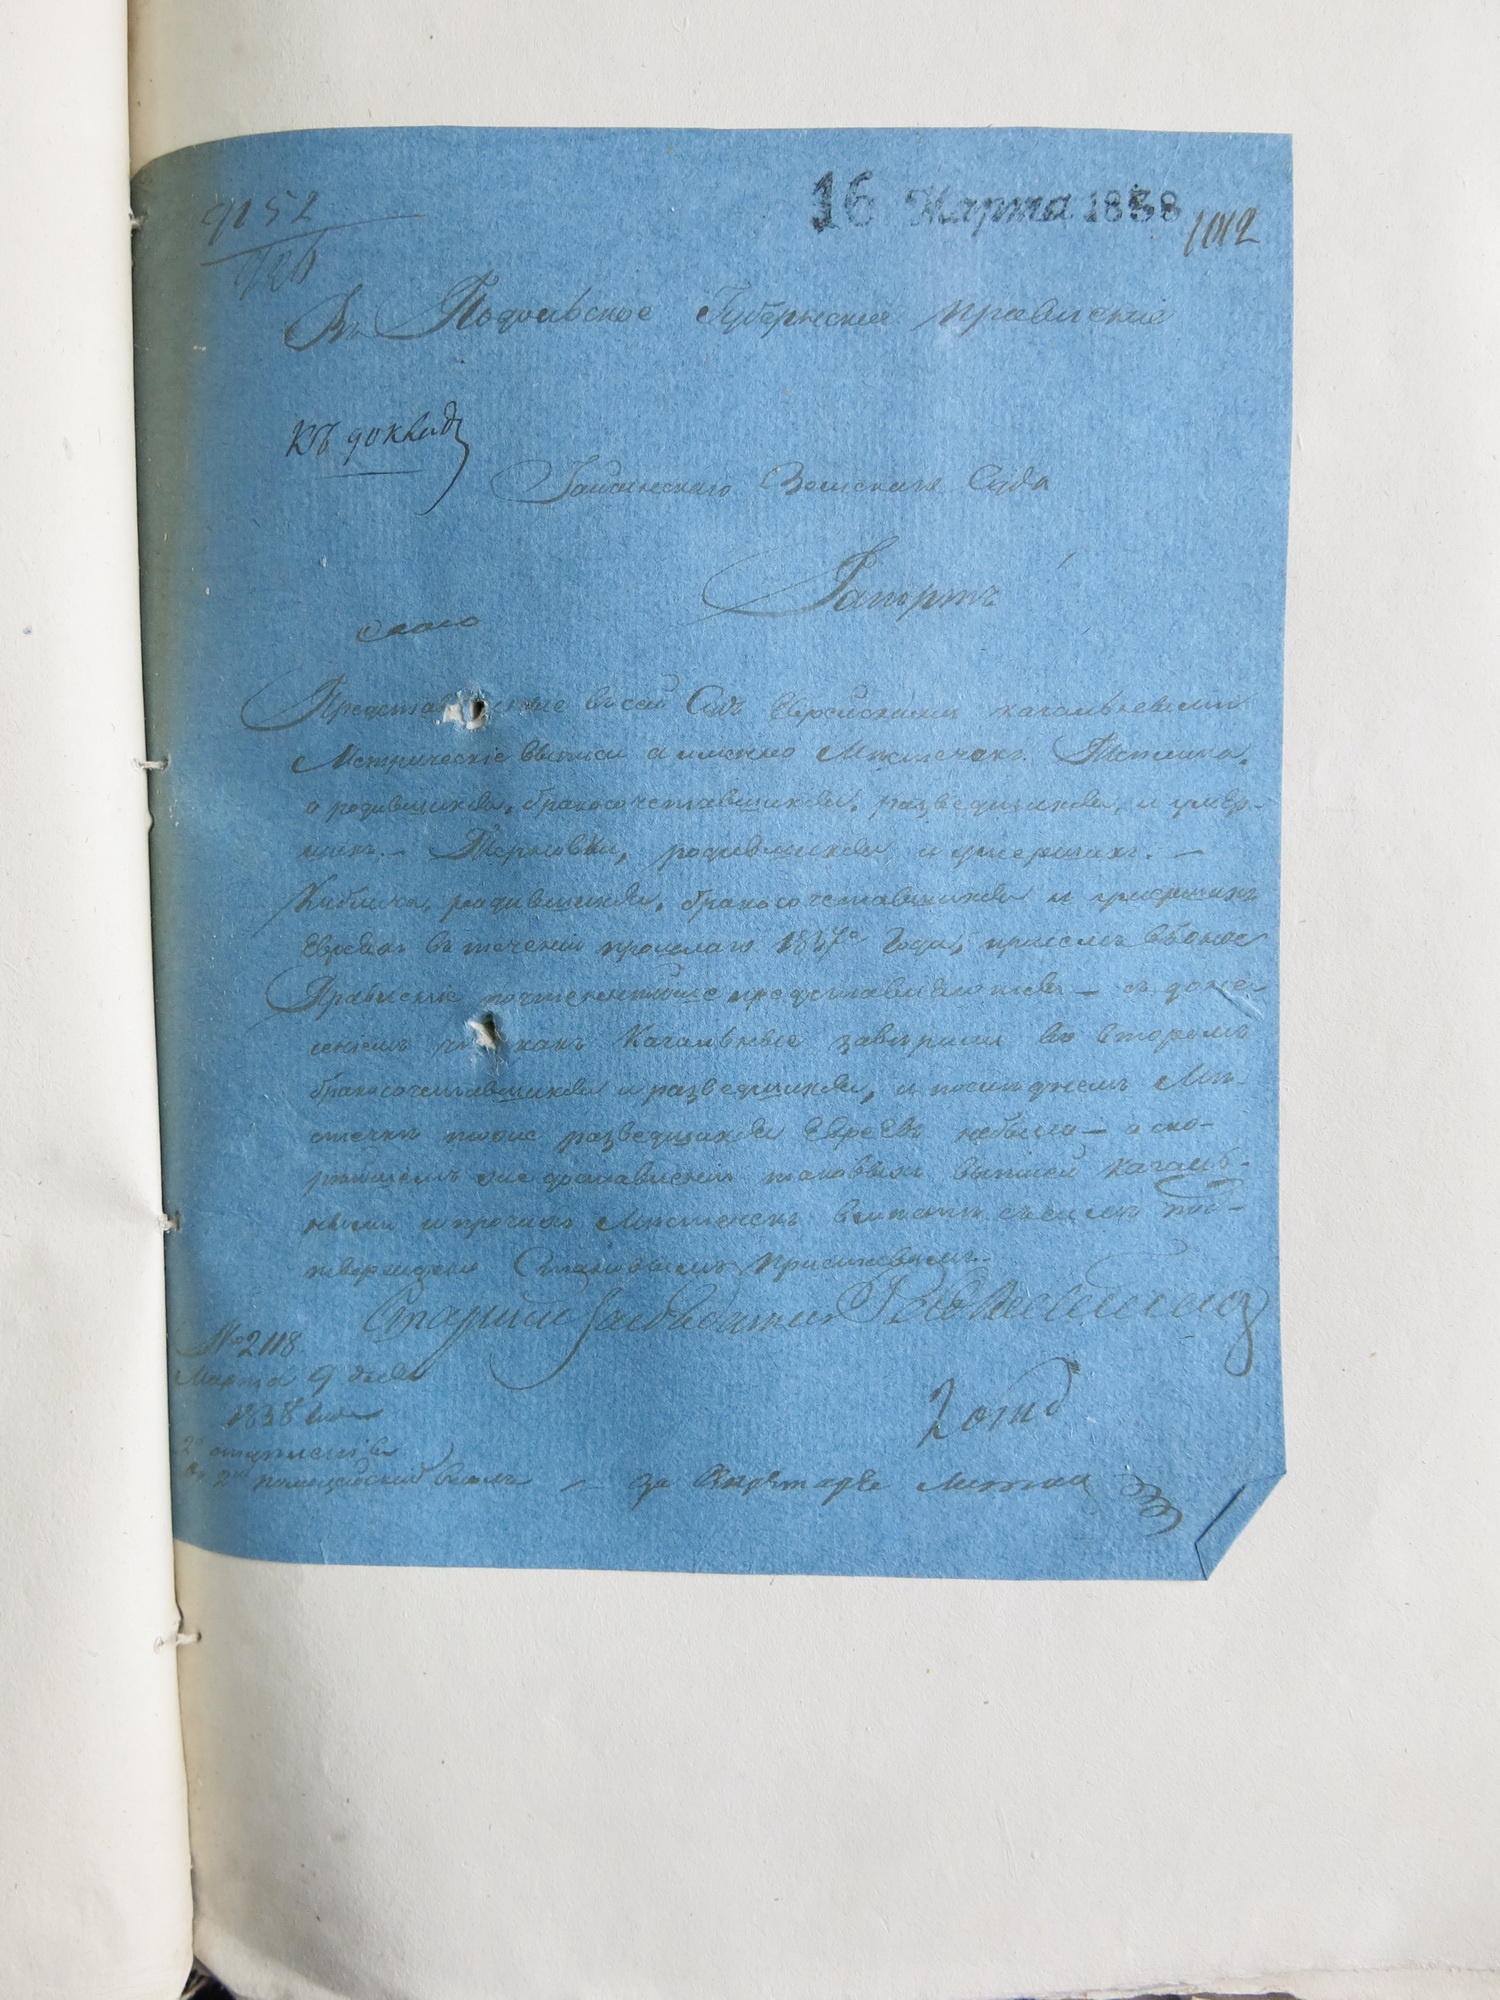 9152
16 Марта 1838
1012
Въ Подольское Губернское правление
Къ докладу
Гайсинскаго Земскаго Суда
Рапортъ
Предста ленные въ сей Судъ Еврейскими кагальными
Метрическіе выписи а именно Мѣстечекъ
о родившихся, бракосочетавшихся, разведшихся, и умер-
шихъ. — Терновки, родившихся и умершихъ. —
Кублича, родившихся, бракосочетавшихся и умершихъ
Евреевъ въ теченіи прошлаго 1837го Года, при семъ въ оное
Правленіе почтеннѣйше представляются — съ доне
сеніемъ что какъ Кагальные завѣрили во второмъ
бракосочетавшихся и разведшихся, и послѣднемъ Мѣ-
стечкѣ разведшихся Евреевъ небыло — о ско-
рѣйшемъ же доставленіи таковыхъ выписей Кагаль-
ными и прочихъ Мѣстечекъ съ симъ под-
тверждено Становымъ Приставамъ.
Старший Засѣдатель
№ 2118
Марта 9 дня
1838 года
2 отдѣленія
за Секретаря